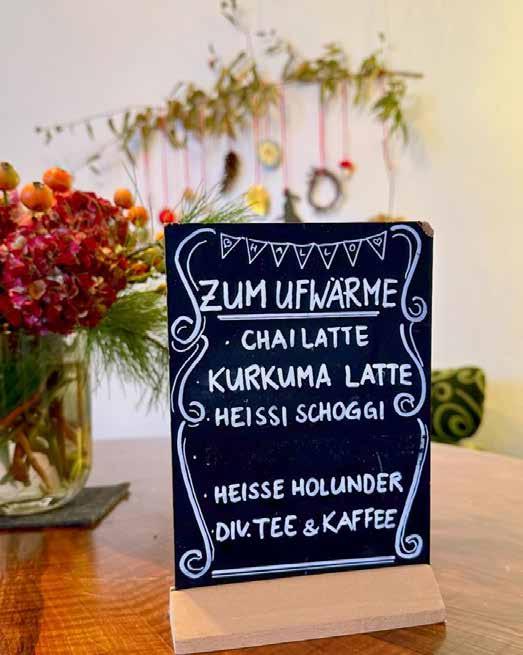 HALLO
ZUM UFWÄRME
· CHAI LATTE
· KURKUMA LATTE
· HEISSI SCHOGGI
· HEISSE HOLUNDER
· DIV. TEE & KAFFEE